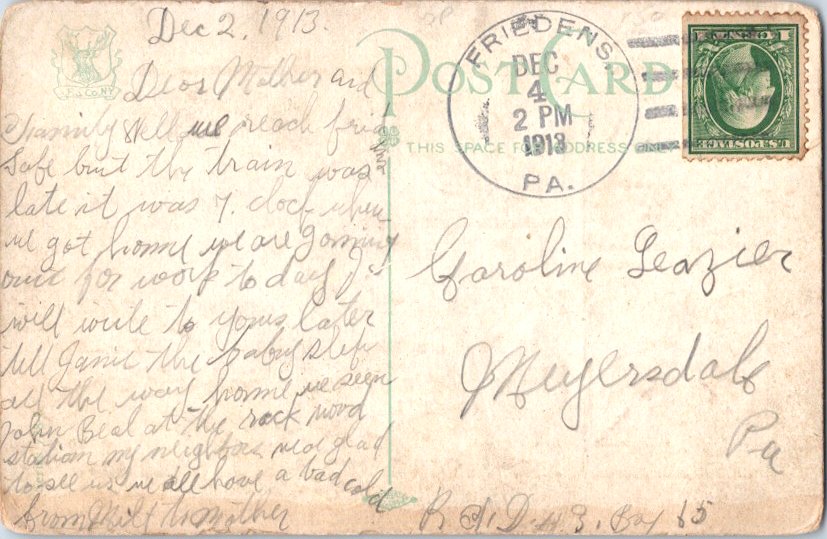 Dec 2, 1913.
Dear Mother and
Chamily Well we reach frid
Safe but the train was
late it was 7. clock when
we got home we are gonning
out for work to day I
will write to yous later
till Janie the baby slep
all the way home we seen
John Beal at the rock wood
station my neighbors was glad
to see us we all have a bad cold
from Milt to Mother
POST CARD
THIS SPACE FOR ADDRESS
FRIEDENS,
DEC
4
2 PM
1913
PA.
U.S. POSTAGE
1 CENT 1
Caroline Leazier
Meyersdale
Pa
R. F. D. # 3. Box 65